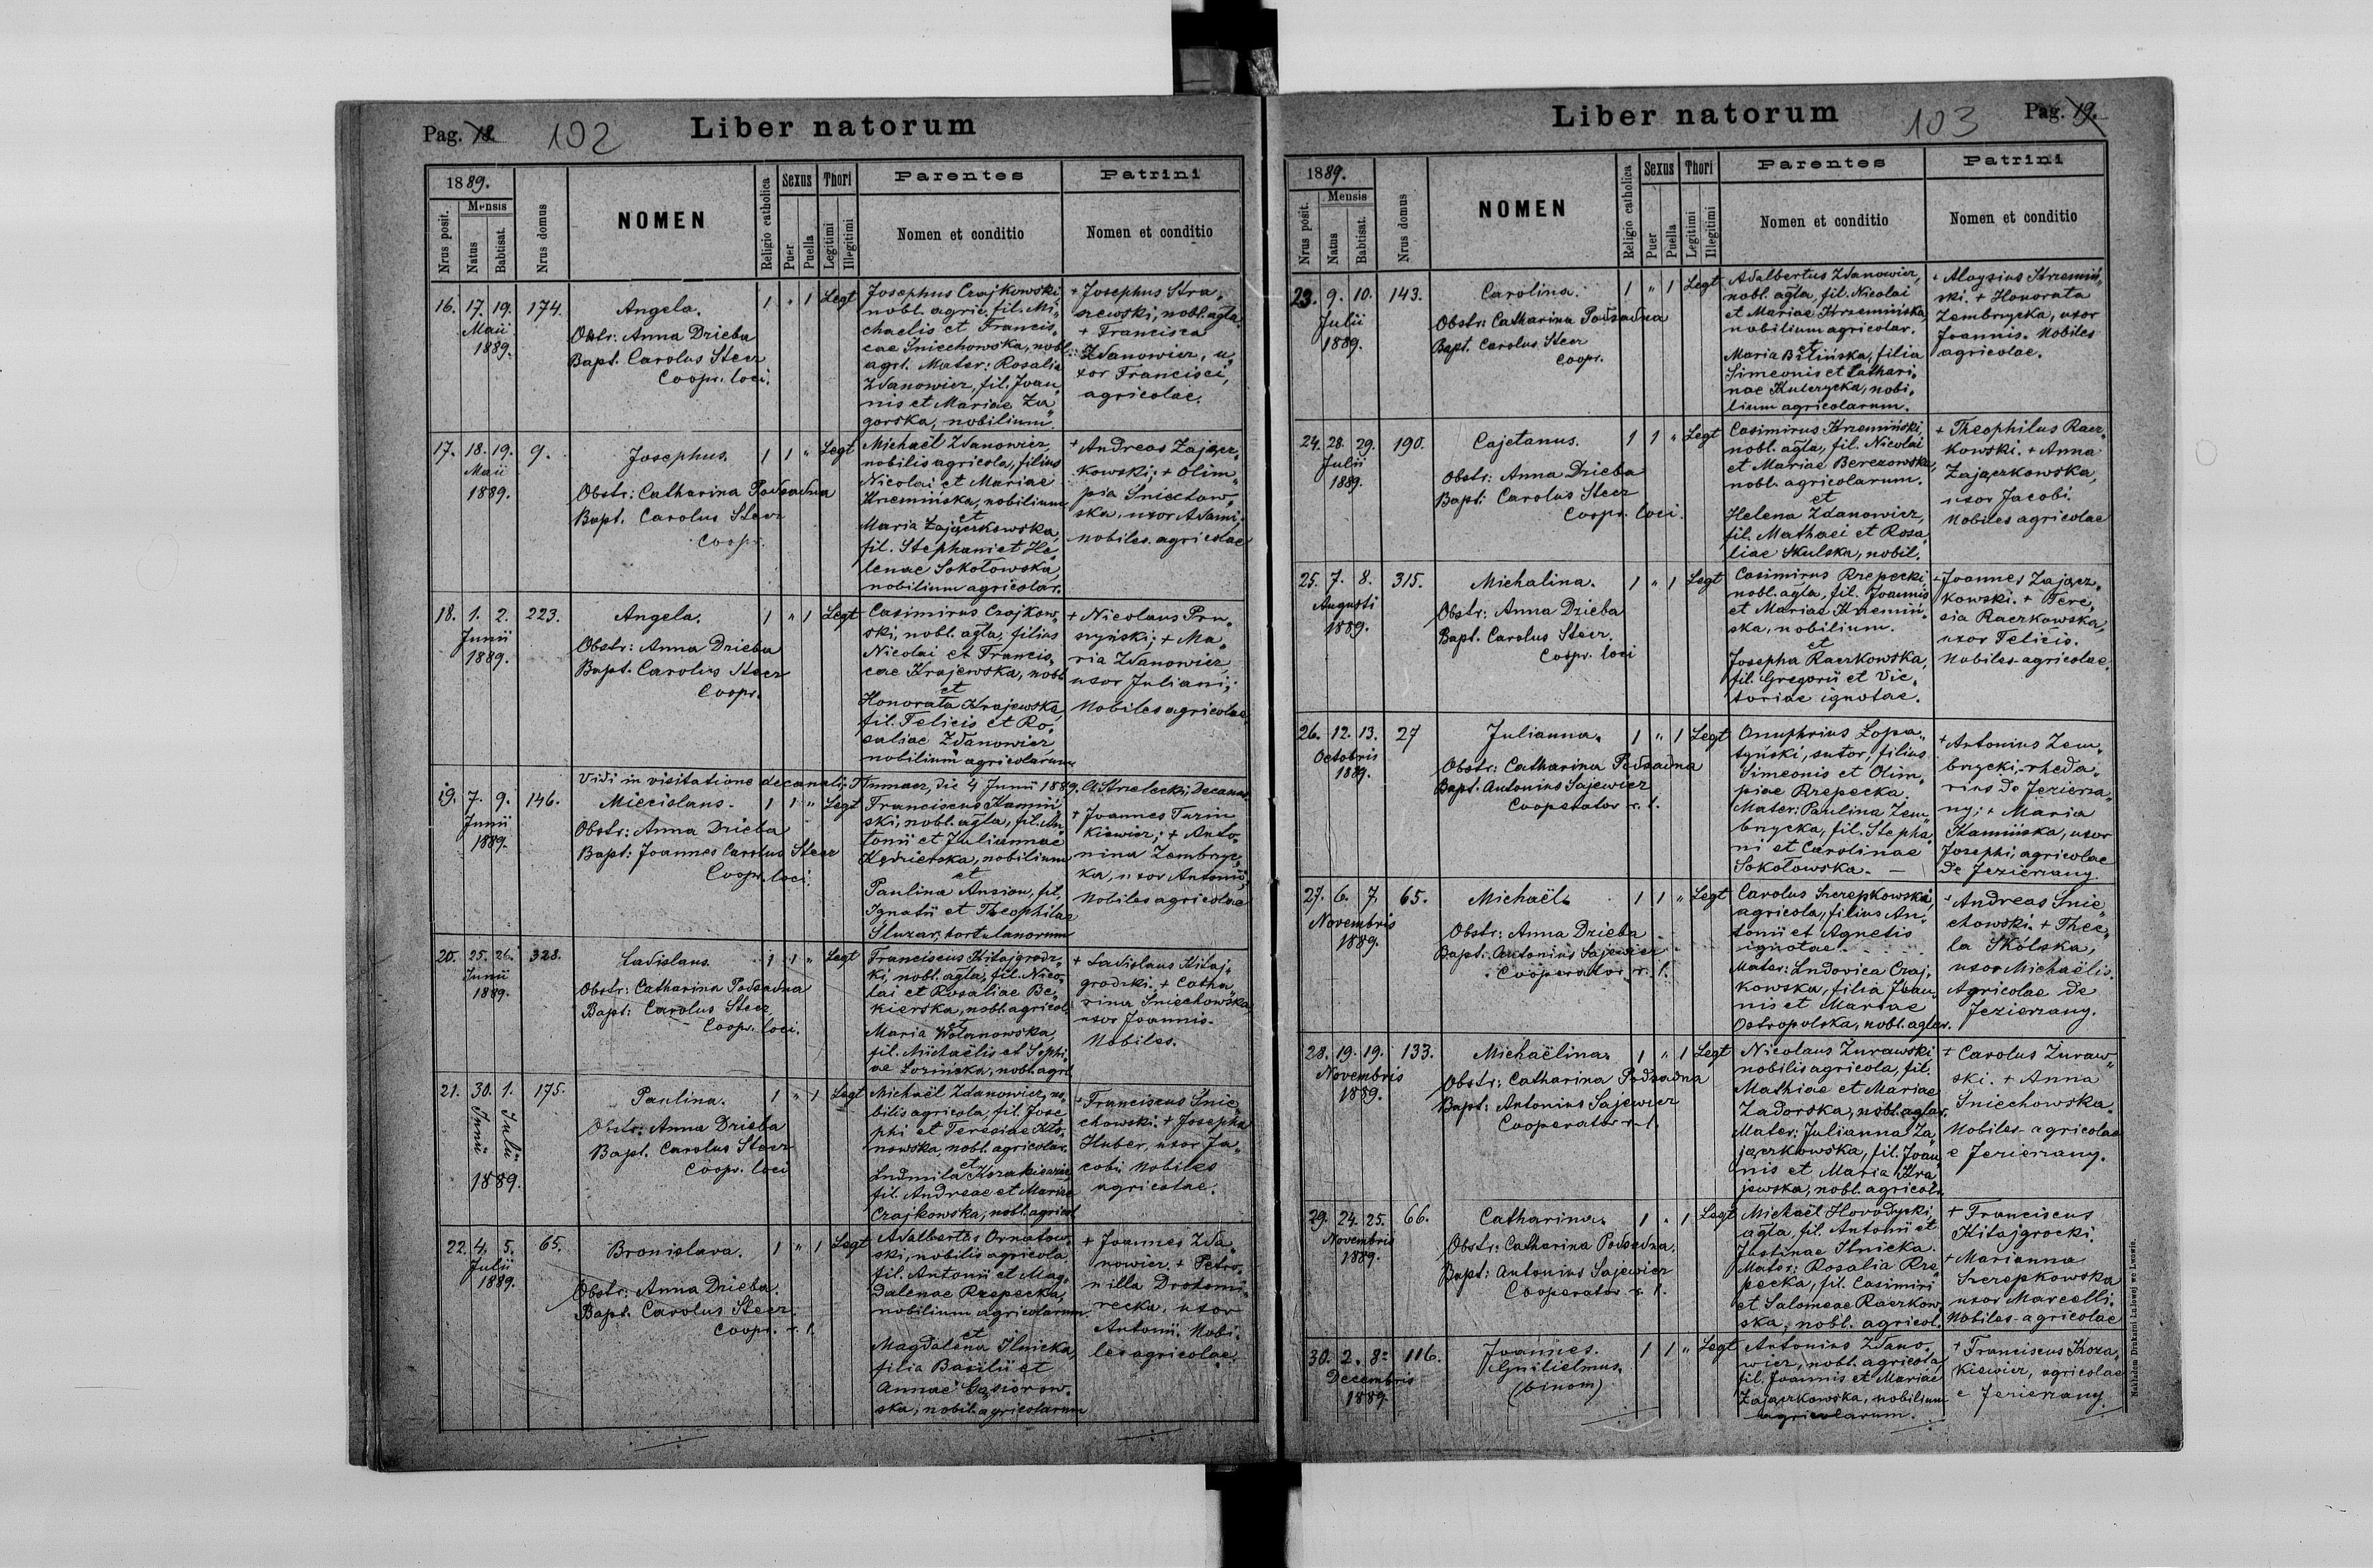 Pag. 18. 102 Liber natorum
1889. Nrus domus NOMEN Religio catholica Sexus Thori Parentes Patrini
Nrus posit. Mensis Natus Babtisat. Puer Puella Legitimi Illegitimi Nomen et conditio Nomen et conditio
16. 17. 19. 174.
Maii
1889.
Angela.
Obstr: Anna Drieba
Bapt. Carolus Steer
Coopr. loci.
1 " 1 Legt
Josephus Czajkowski
nobl. agric. fil. Mi„
chaelis et Francis„
cae Sniechowska, nobl.
agrl. Mater: Rosalia
Zdanowicz, fil. Joan„
nis et Mariae Za„
gorska, nobilium.
+ Josephus Stra„
szewski, nobl. agla.
+ Francisca
Zdanowicz, u„
xor Francisci,
agricolae.
17. 18. 19. 9.
Maii
1889.
Josephus.
Obstr: Catharina Podsadna
Bapt. Carolus Steer
Coopr.
1 1 " Legt
Michaël Zdanowicz
nobilis agricola, filius
Nicolai et Mariae
Krzemińska, nobilium
et
Maria Zajączkowska,
fil. Stephani et He„
lenae Sokołowska
nobilium agricolar.
+ Andreas Zającz„
kowski; + Olim„
pia Sniechow„
ska, uxor Adami.
nobiles agricolae
18. 1. 2. 223.
Junii
1889.
Angela.
Obstr: Anna Drieba
Bapt. Carolus Steer
Coopr.
1 " 1 Legt
Casimirus Czajkow„
ski, nobl. agla, filius
Nicolai et Francis„
cae Krajewska, nobl
et
Honorata Krajewska,
fil. Felicis et Ro„
saliae Zdanowicz
nobilium agricolarum
+ Nicolaus Pru„
szyński; + Ma„
ria Zdanowicz
uxor Juliani;
Nobiles agricolae.
Vidi in visitatione decanali, Tłumacz, die 4 Junii 1889. AStrzelecki, Decanus
19. 7. 9. 146.
Junii
1889.
Miecislaus.
Obstr: Anna Drieba
Bapt: Joannes Carolus Steer
Coopr. loci.
1 1 " Legt
Franciscus Kamiń„
ski, nobl. agla, fil. An„
tonii et Juliannae
Kędzierska, nobilium
et
Paulina Ansion, fil.
Ignatii et Theophilae
Sluzar, hortulanorum
+ Joannes Turin
kiewicz; + Anto„
nina Zembryc„
ka, uxor Antonii,
Nobiles agricolae
20. 25. 26. 328.
Junii
1889.
Ladislaus.
Obstr: Catharina Podsadna
Bapt: Carolus Steer
Coopr. loci.
1 1 " Legt
Franciscus Kitajgrodz„
ki, nobl. agla, fil. Nico„
lai et Rosaliae Be„
kierska, nobl. agricol.
et
Maria Wolanowska
fil. Michaëlis et Sophi„
ae Lozińska, nobl. agrl
+ Ladislaus Kitaj„
grodzki. + Catha„
rina Sniechowska,
uxor Joannis.
Nobiles.
21. 30. 1. 175.
Junii Julii
1889.
Paulina.
Obstr: Anna Drieba
Bapt. Carolus Steer
Coopr. loci
1 " 1 Legt
Michaël Zdanowicz, no„
bilis agricola, fil. Jose„
phi et Teresiae Kło„
nowska, nobl. agricolar.
et
Ludmila Kozakiewicz
fil. Andreae et Mariae
Czajkowska, nobl. agricol
+ Franciscus Śnie„
chowski. + Josepha
Huber, uxor Ja„
cobi nobiles
agricolae.
22. 4. 5. 65.
Julii
1889.
Bronislava.
Obstr: Anna Drieba.
Bapt. Carolus Steer.
Coopr. r. l.
1 " 1 Legt
Adalbertus Ornatow„
ski, nobilis agricola
fil. Antonii et Mag„
dalenae Rzepecka,
nobilium agricolarum.
et
Magdalena Ilnicka,
filia Basilii et
Annae Gąsiorow„
ska, nobil. agricolarum
+ Joannes Zda„
nowicz. + Petro„
nilla Drohomi„
recka, uxor
Antonii. Nobi„
les agricolae.
Liber natorum 103 Pag. 19.
1889. Nrus domus NOMEN Religio catholica Sexus Thori Parentes Patrini
Nrus posit. Mensis Natus Babtisat. Puer Puella Legitimi Illegitimi Nomen et conditio Nomen et conditio
23. 9. 10. 143.
Julii
1889.
Carolina.
Obstr: Catharina Podsadna
Bapt. Carolus Steer
Coopr.
1 " 1 Legt
Adalbertus Zdanowicz,
nobl. agla, fil. Nicolai
et Mariae Krzemińska,
nobilium agricolar.
et
Maria Bilińska, filia
Simeonis et Cathari„
nae Kulczycka, nobi„
lium agricolarum.
+ Aloysius Krzemiń„
ski. + Honorata
Zembrzycka, uxor
Joannis. Nobiles
agricolae.
24. 28. 29. 190.
Julii
1889.
Cajetanus.
Obstr: Anna Drieba
Bapt: Carolus Steer
Coopr. loci.
1 1 " Legt
Casimirus Krzemiński,
nobl. agla, fil. Nicolai
et Mariae Berezowska,
nobl. agricolarum.
et
Helena Zdanowicz,
fil. Mathaei et Rosa„
liae Skulska, nobil.
+ Theophilus Racz„
kowski. + Anna
Zajączkowska,
uxor Jacobi.
Nobiles agricolae
25. 7. 8. 315.
Augusti
1889.
Michalina.
Obstr: Anna Drieba
Bapt. Carolus Steer.
Coopr. loci
1 " 1 Legt
Casimirus Rzepecki,
nobl. agla, fil. Joannis
et Mariae Krzemiń„
ska, nobilium.
et
Josepha Raczkowska,
fil. Gregorii et Vic„
toriae ignotae.
+ Joannes Zającz„
kowski. + Tere„
sia Raczkowska,
uxor Felicis.
Nobiles-agricolae.
26. 12. 13. 27
Octobris
1889.
Julianna.
Obstr: Catharina Podsadna
Bapt. Antonius Sajewicz
Cooperator r. l.
1 " 1 Legt
Onuphrius Łopa„
tyński, sutor, filius
Simeonis et Olim„
piae Rzepecka.
Mater: Paulina Zem„
brzycka, fil. Stepha„
ni et Carolinae
Sokołowska. —
+ Antonius Zem„
brzycki, rheda„
rius de Jezierza„
ny; + Maria
Kamińska, uxor
Josephi, agricolae
de Jezierzany.
27. 6. 7. 65.
Novembris
1889.
Michaël.
Obstr: Anna Drieba
Bapt: Antonius Sajewicz
Cooperator r. l.
1 1 " Legt
Carolus Szczepkowski,
agricola, filius An„
tonii et Agnetis
ignotae.
Mater: Ludovica Czaj„
kowska, filia Joan„
nis et Mariae
Ostropolska, nobl. aglar.
+ Andreas Snie„
chowski. + Thec„
la Skólska,
uxor Michaëlis.
Agricolae de
Jezierzany.
28. 19. 19. 133.
Novembris
1889.
Michaëlina.
Obstr: Catharina Podsadna
Bapt: Antonius Sajewicz
Cooperator r. l.
1 " 1 Legt
Nicolaus Żurawski
nobilis agricola, fil.
Mathiae et Mariae
Zadorska, nobl. aglar.
Mater: Julianna Za„
jączkowska, fil. Joan„
nis et Maria Kra„
jewska, nobl. agricol.
+ Carolus Żuraw„
ski. + Anna
Sniechowska.
Nobiles-agricolae
e Jezierzany.
29. 24. 25. 66.
Novembris
1889.
Catharina.
Obstr: Catharina Podsadna.
Bapt: Antonius Sajewicz
Cooperator r. l.
1 " 1 Legt
Michaël Horodyski,
agla, fil. Antonii et
Justinae Ilnicka.
Mater: Rosalia Rze„
pecka, fil. Casimiri
et Salomeae Raczkow„
ska, nobl. agricol.
+ Franciscus
Kitajgrocki.
+ Marianna
Szczepkowska
uxor Marcelli.
Nobiles-agricolae
30. 2. 8. 116.
Decembris
1889.
Joannes.
Guilielmus.
(binom)
1 1 " Legt
Antonius Zdano„
wicz, nobl. agricola,
fil. Joannis et Mariae
Zajączkowska, nobilium
agricolarum.
+ Franciscus Koza„
kiewicz, agricolae
e Jezierzany.
Nakładem Drukarni Ludowej we Lwowie.